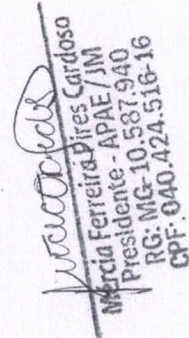 Márcia Ferreira Pires Cardoso
Presidente - APAE/JM
RG: MG-10.587.940
CPF: 040.424.516-16